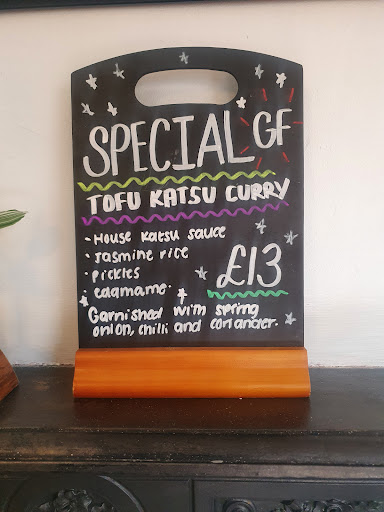 SPECIAL GF
TOFU KATSU CURRY
· House Katsu sauce
· Jasmine rice
· Pickles
· Edamame.
£13
Garnished with spring
onion, chilli and coriander.